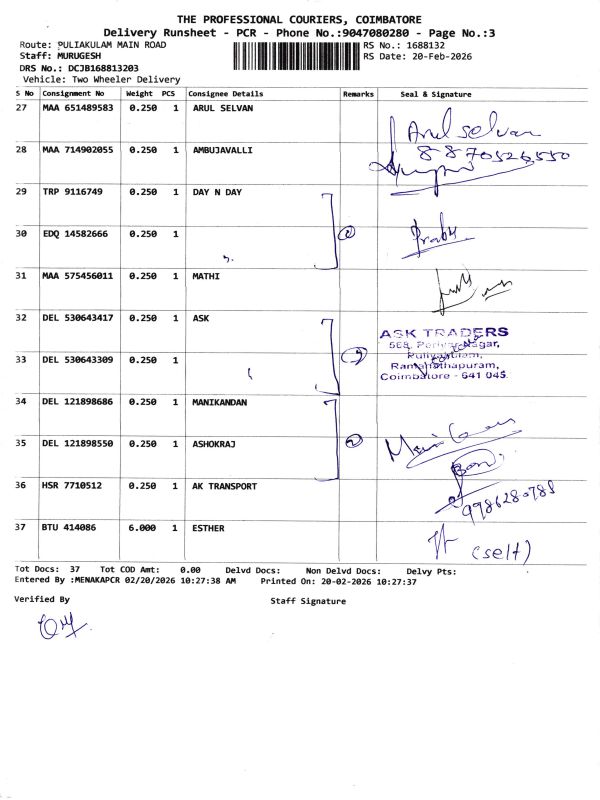 THE PROFESSIONAL COURIERS, COIMBATORE
Delivery Runsheet - PCR - Phone No.:9047080280 - Page No.:3
Route: PULIAKULAM MAIN ROAD
RS No.: 1688132
Staff: MURUGESH
RS Date: 20-Feb-2026
DRS No.: DCJB168813203
Vehicle: Two Wheeler Delivery
S No Consignment No Weight PCS Consignee Details Remarks Seal & Signature
27 MAA 651489583 0.250 1 ARUL SELVAN
Arul selvan
8870526550
28 MAA 714902055 0.250 1 AMBUJAVALLI
29 TRP 9116749 0.250 1 DAY N DAY
30 EDQ 14582666 0.250 1
31 MAA 575456011 0.250 1 MATHI
32 DEL 530643417 0.250 1 ASK
ASK TRADERS
568, Periyar Nagar,
Puliyakulam,
Ramanathapuram,
Coimbatore - 641 045.
33 DEL 530643309 0.250 1
34 DEL 121898686 0.250 1 MANIKANDAN
35 DEL 121898550 0.250 1 ASHOKRAJ
36 HSR 7710512 0.250 1 AK TRANSPORT
37 BTU 414086 6.000 1 ESTHER
(self)
Tot Docs: 37 Tot COD Amt: 0.00 Delvd Docs: Non Delvd Docs: Delvy Pts:
Entered By :MENAKAPCR 02/20/2026 10:27:38 AM Printed On: 20-02-2026 10:27:37
Verified By
Staff Signature